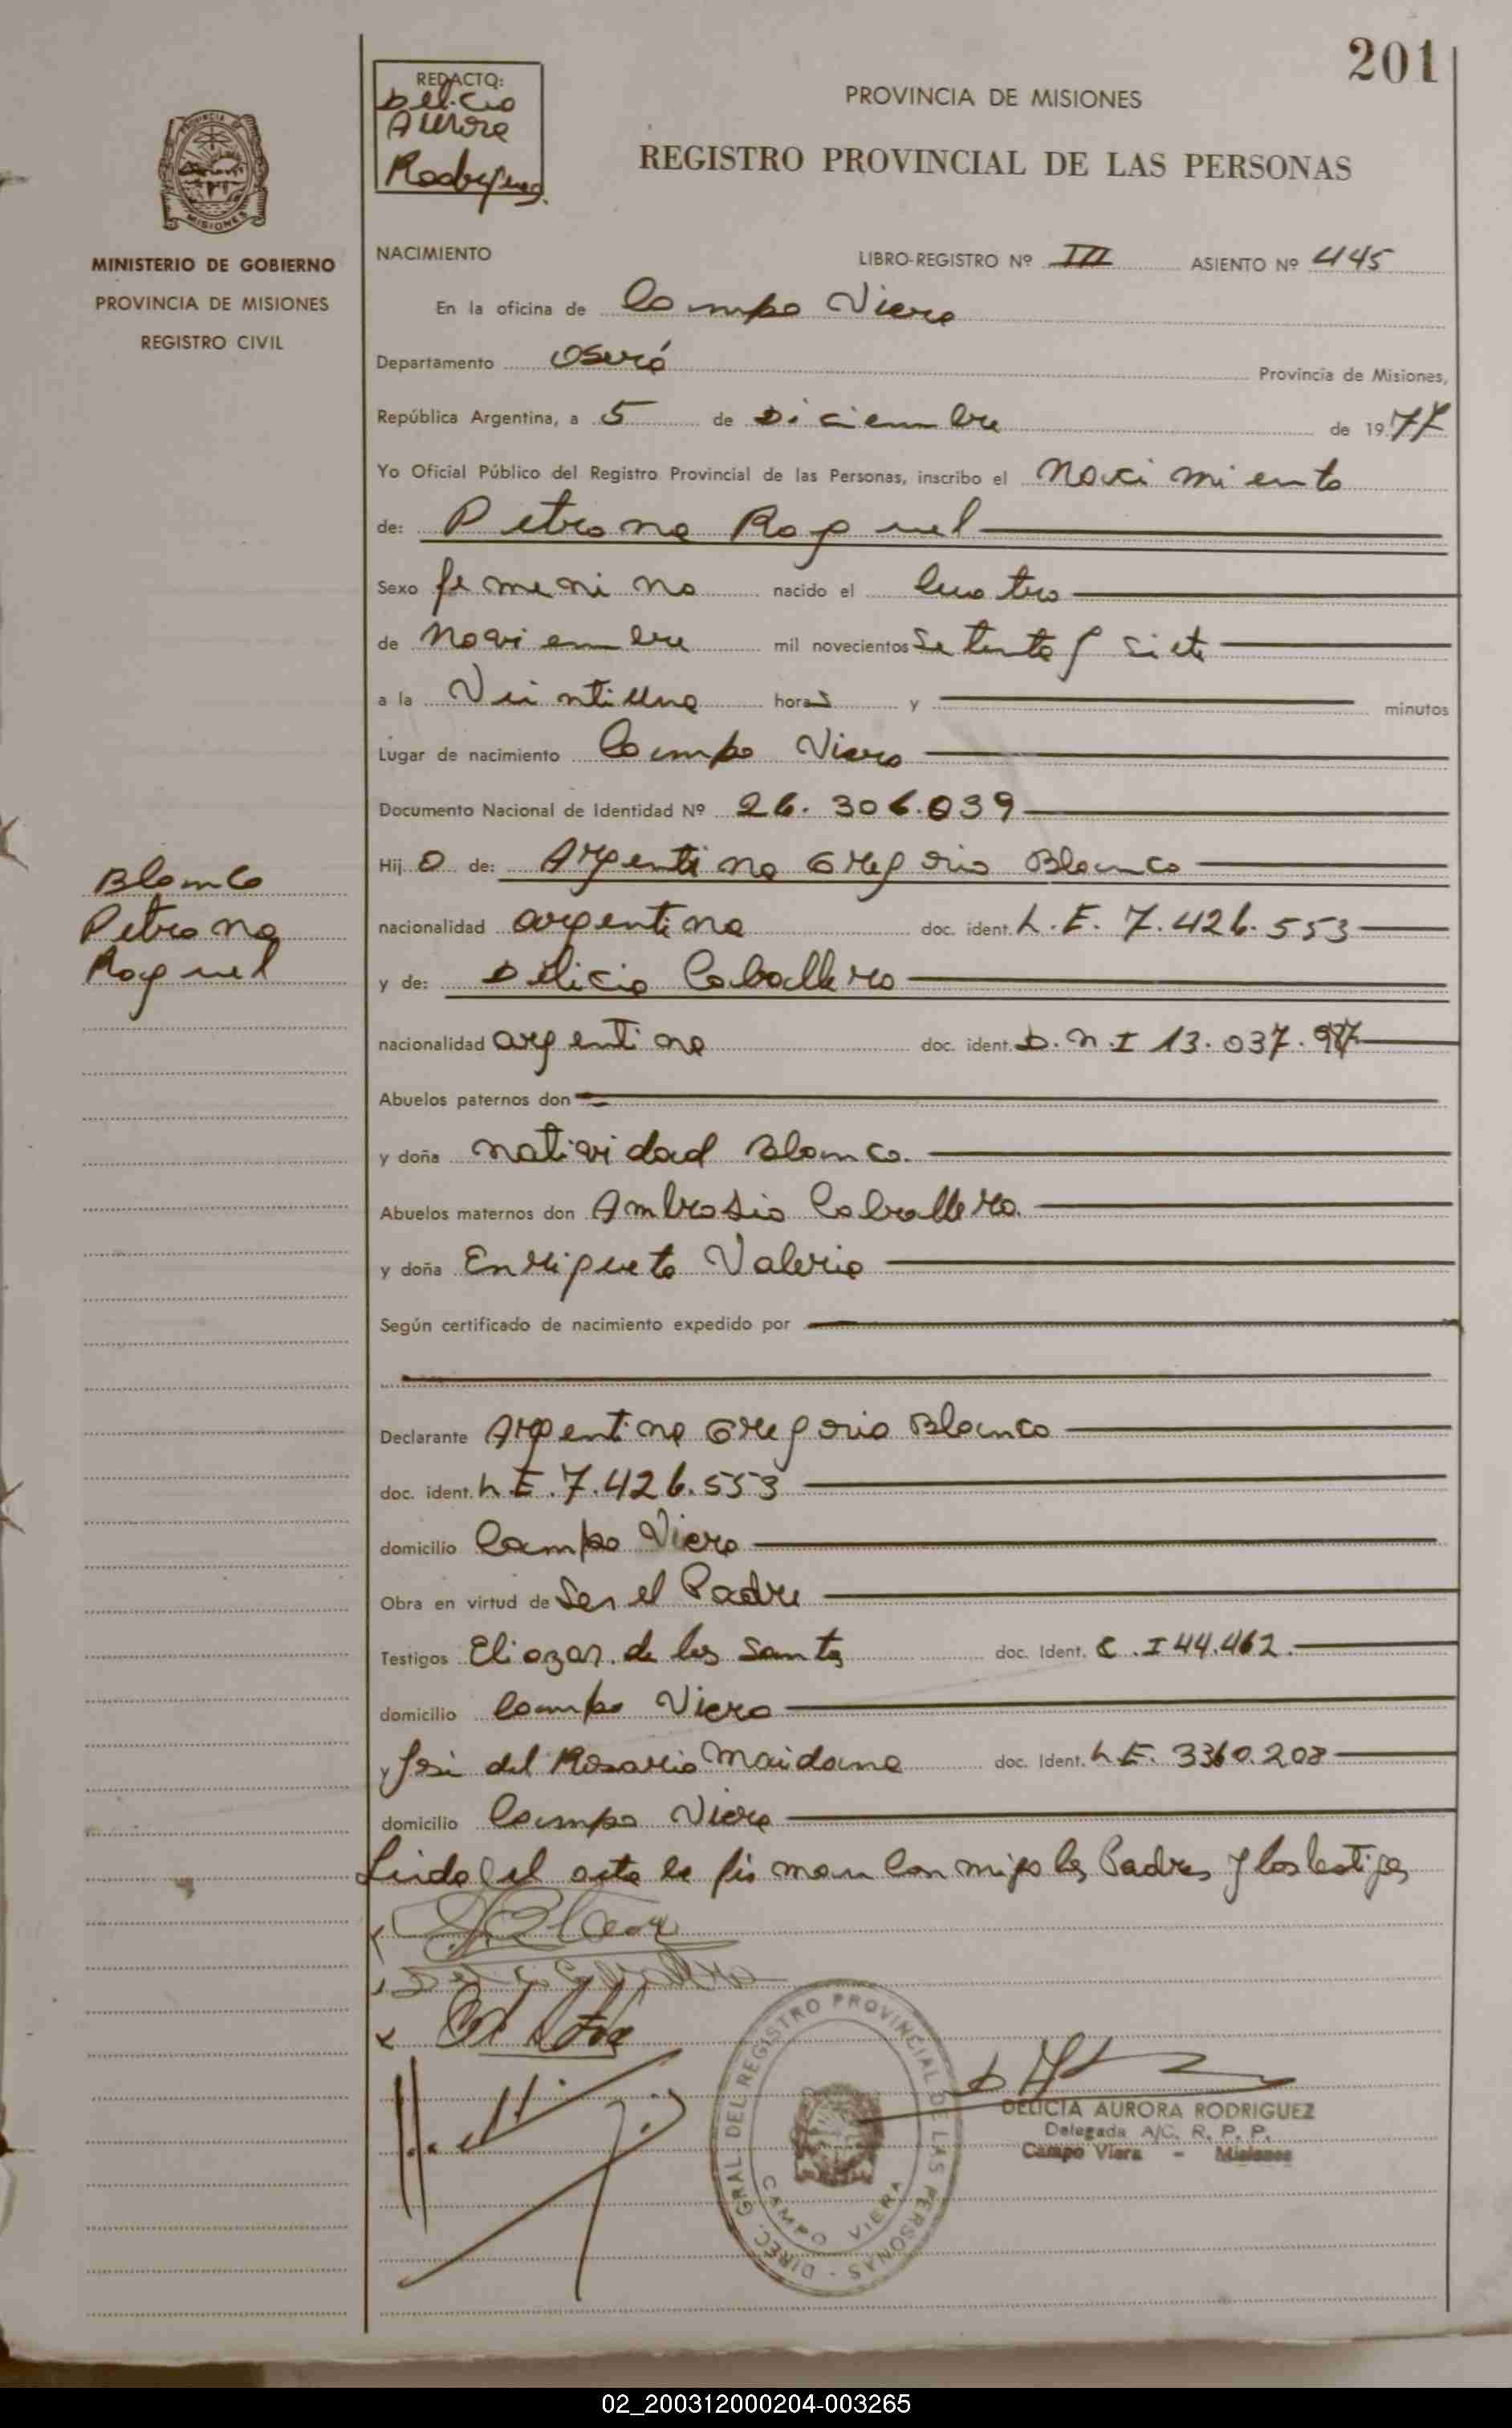 201
REDACTO:
Delicia
Aurora
Rodriguez
PROVINCIA DE MISIONES
REGISTRO PROVINCIAL DE LAS PERSONAS
PROVINCIA DE
MISIONES
MINISTERIO DE GOBIERNO
PROVINCIA DE MISIONES
REGISTRO CIVIL
NACIMIENTO LIBRO-REGISTRO Nº III ASIENTO Nº 445
En la oficina de Campo Viera
Departamento Oberá Provincia de Misiones,
República Argentina, a 5 de Diciembre de 1977
Yo Oficial Público del Registro Provincial de las Personas, inscribo el Nacimiento
de: Petrona Raquel
Sexo femenino nacido el cuatro
de Noviembre mil novecientos setenta y siete
a la Veintiuna horas y minutos
Lugar de nacimiento Campo Viera
Documento Nacional de Identidad Nº 26.306.039
Hija de: Argentino Gregorio Blanco
nacionalidad argentina doc. ident. L.E. 7.426.553
y de: Delicia Caballero
nacionalidad argentina doc. ident. D.N.I 13.037.
Abuelos paternos don
y doña Natividad Blanco.
Abuelos maternos don Ambrosio Caballero.
y doña Enriqueta Valerio
Según certificado de nacimiento expedido por
Declarante Argentino Gregorio Blanco
doc. ident. L.E. 7.426.553
domicilio Campo Viera
Obra en virtud de Ser el Padre
Testigos Eliozar de los Santos doc. Ident. C.I 44.462.
domicilio Campo Viera
y José del Rosario Maidana doc. Ident. L.E. 3360.208
domicilio Campo Viera
Leida el acta la firman conmigo los Padres y los testigos
Blanco
Petrona
Raquel
DIREC. GRAL. DEL REGISTRO PROVINCIAL DE LAS PERSONAS -
CAMPO VIERA
DELICIA AURORA RODRIGUEZ
Delegada A/C. R. P. P.
Campo Viera - Misiones
02_200312000204-003265